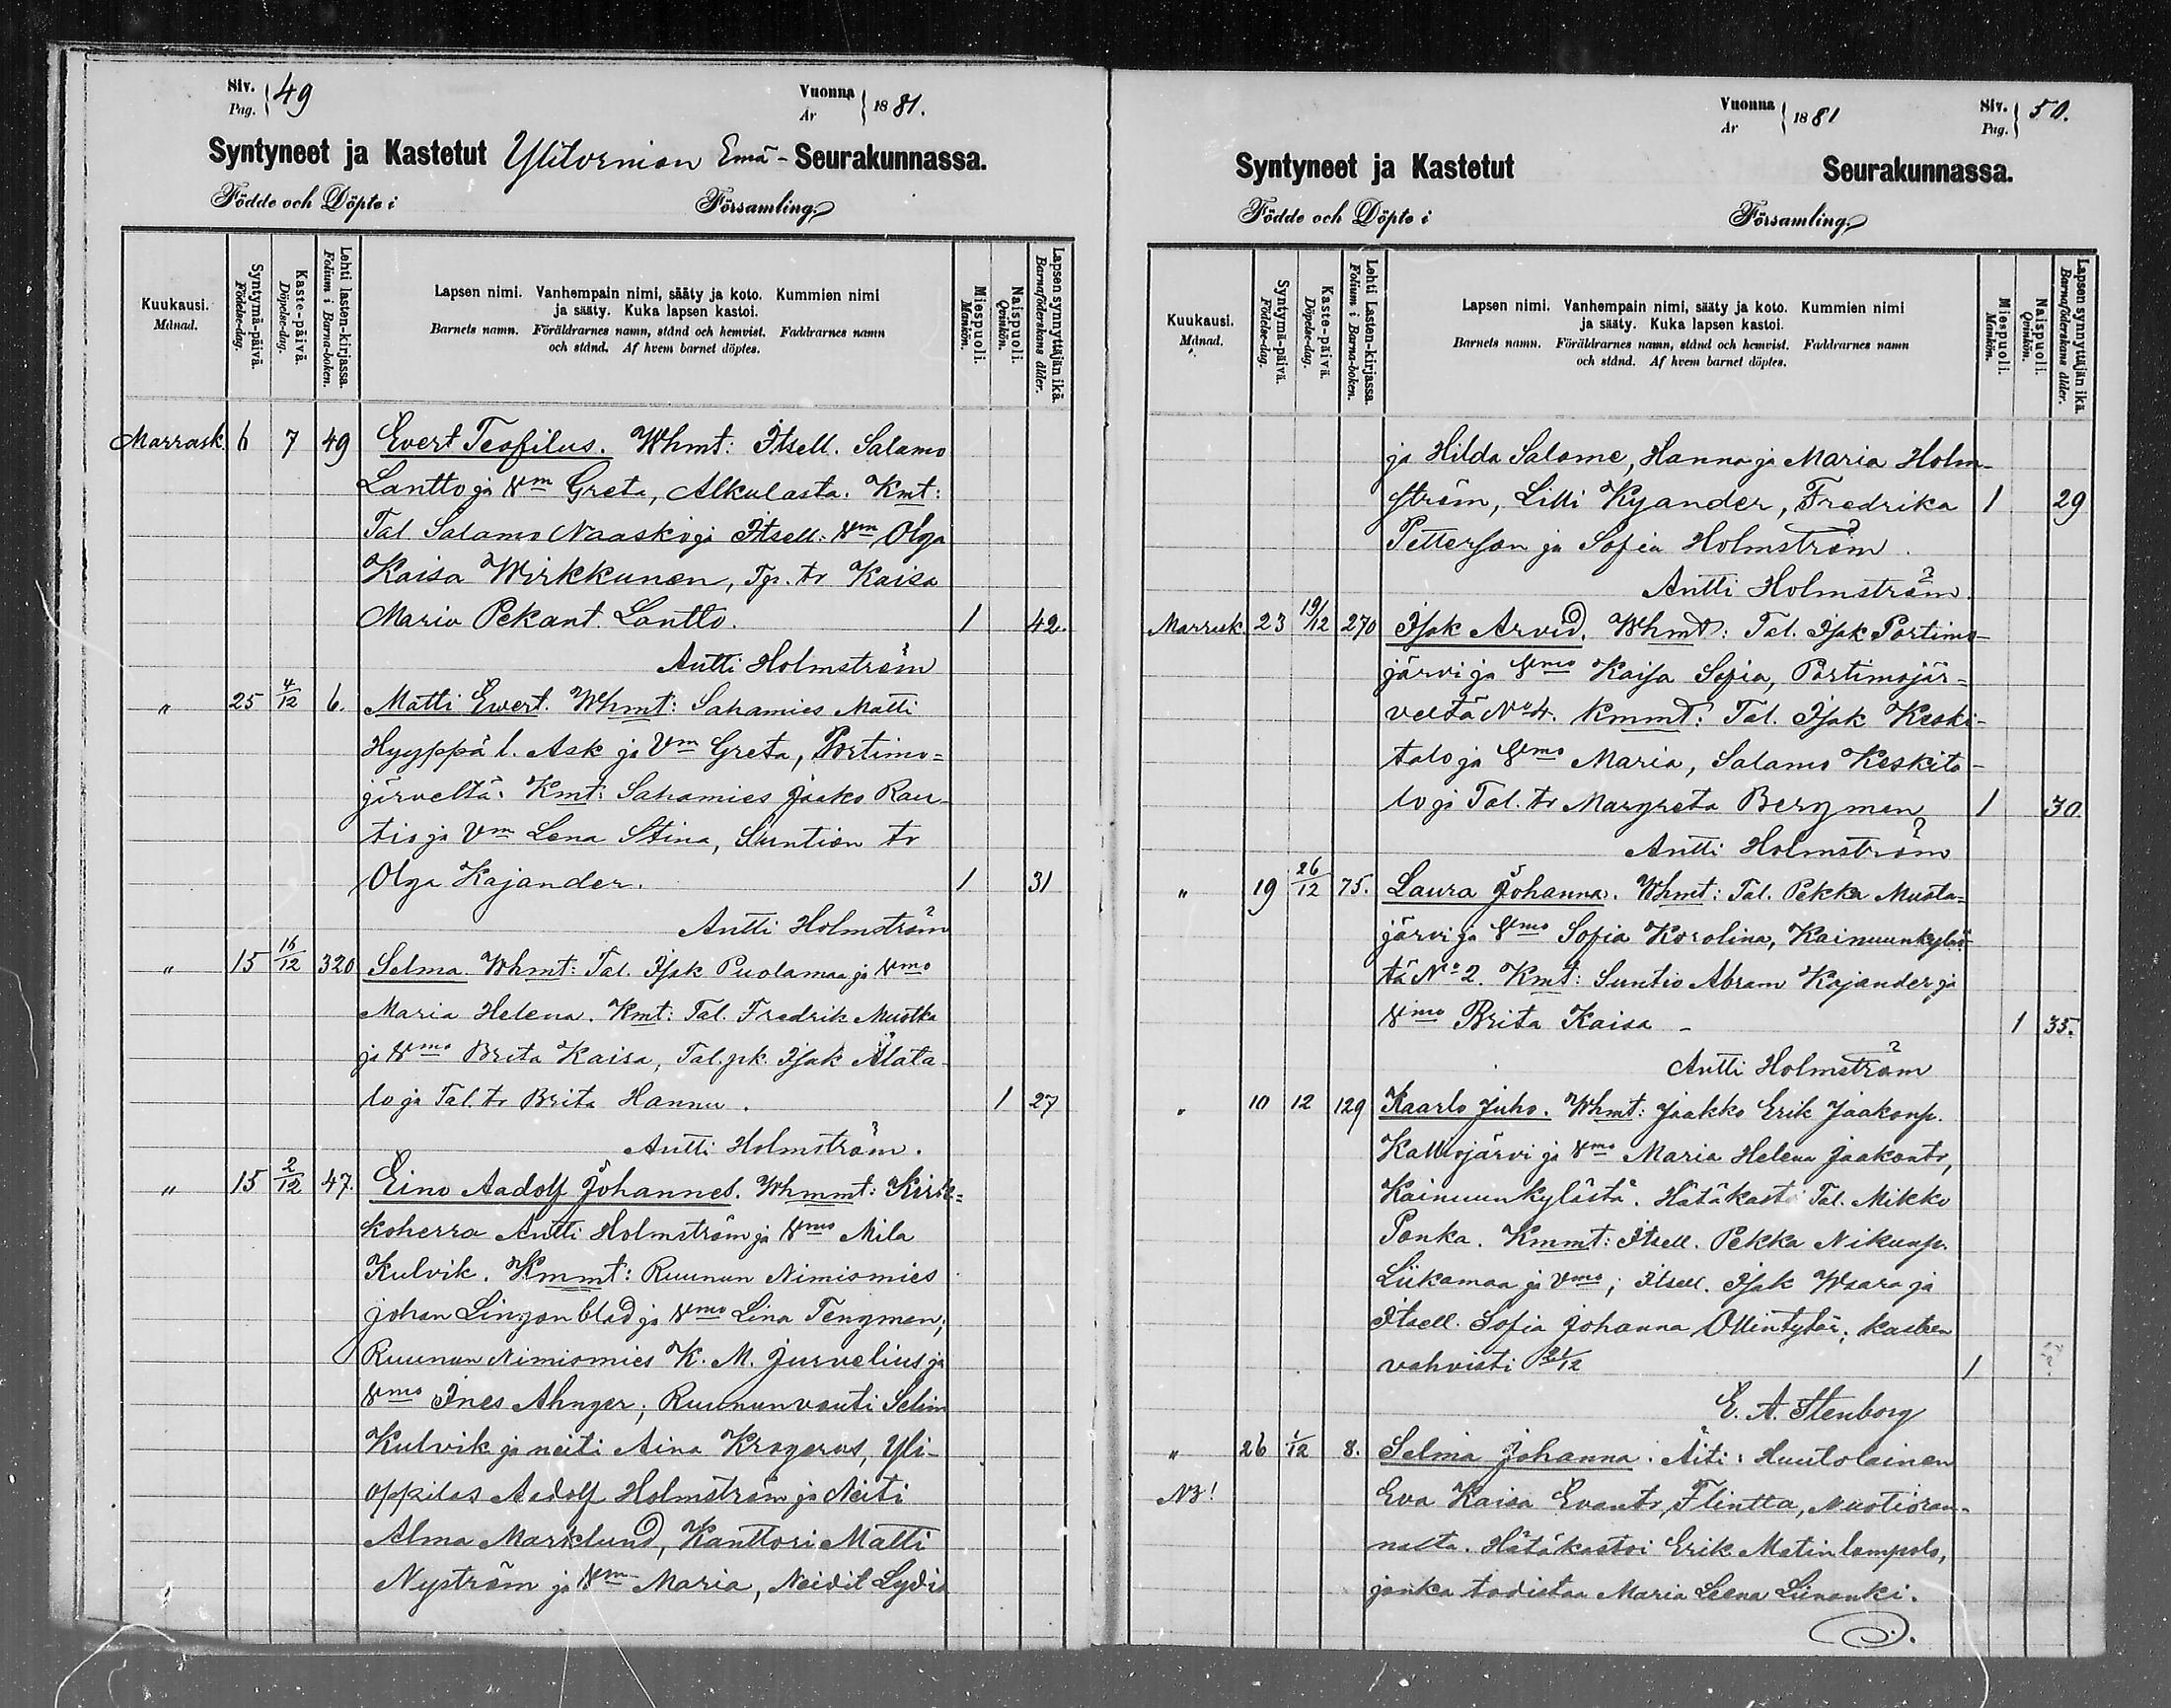 Siv. Pag. } 49
Vuonna År } 1881.
Syntyneet ja Kastetut Ylitornion Emä-Seurakunnassa.
Födde och Döpte i Församling
Kuukausi. Månad.
Syntymä-päivä. Födelse-dag.
Kaste-päivä. Döpelse-dag.
Lehti lasten-kirjassa. Folium i Barna-boken.
Lapsen nimi. Vanhempain nimi, sääty ja koto. Kummien nimi
ja sääty. Kuka lapsen kastoi.
Barnets namn. Föräldrarnes namn, stånd och hemvist. Faddrarnes namn
och stånd. Af hvem barnet döptes.
Miespuoli. Mankön.
Naispuoli. Qvinkön.
Lapsen synnyttäjän ikä. Barnaföderskans ålder.
Marrask. 6 7 49 Evert Teofilus. Whmt: Itsell. Salamo
Lantto ja Vm Greta, Alkulasta. Kmt:
Tal. Salamo Naaski ja Itsell. Vm Olga
Kaisa Wirkkunen, Tp. tr Kaisa
Maria Pekant. Lantto. 1 42.
Antti Holmström
" 25 4/12 6. Matti Ewert. Whmt: Sahamies Matti
Hyyppä l. Ask ja Vm Greta, Portimo=
järveltä. Kmt: Sahamies Jaako Rau-
tio ja Vm Lena Stina, Suntion tr
Olga Kajander. 1 31
Antti Holmström
" 15 16/12 320 Selma. Whmt: Tal. Isak Puolamaa ja Vmo
Maria Helena. Kmt: Tal. Fredrik Muotka
ja Vmo Brita Kaisa, Tal. pk. Isak Alata-
lo ja Tal. tr Brita Hannu. 1 27
Antti Holmström.
" 15 2/12 47. Eino Aadolf Johannes. Whmmt: Kirk=
koherra Antti Holmström ja Vmo Mila
Kulvik. Kmmt: Ruunun Nimismies
Johan Lingonblad ja Vmo Lina Tengman;
Ruunun Nimismies K. M. Jurvelius ja
Vmo Ines Ahnger; Ruununvouti Selim
Kulvik ja neiti Aina Krogerus, Yli-
oppilas Aadolf Holmström ja Neiti
Alma Marklund, Kanttori Matti
Nyström ja Vm Maria, Neidit Lydia
Vuonna År } 1881
Siv. Pag. } 50.
Syntyneet ja Kastetut Seurakunnassa.
Födde och Döpte i Församling
Kuukausi. Månad.
Syntymä-päivä. Födelse-dag.
Kaste-päivä. Döpelse-dag.
Lehti Lasten-kirjassa. Folium i Barna-boken.
Lapsen nimi. Vanhempain nimi, sääty ja koto. Kummien nimi
ja sääty. Kuka lapsen kastoi.
Barnets namn. Föräldrarnes namn, stånd och hemvist. Faddrarnes namn
och stånd. Af hvem barnet döptes.
Miespuoli. Mankön.
Naispuoli. Qvinkön.
Lapsen synnyttäjän ikä. Barnaföderskans ålder.
ja Hilda Salome, Hanna ja Maria Holm-
ström, Lilli Kyander, Fredrika 1 29
Petterson ja Sofia Holmström.
Antti Holmström.
Marrask 23 19/12 270 Isak Arvid. Whmt: Tal. Isak Portimo-
järvi ja Vmo Kaisa Sofia, Portimojär=
veltä No 4. Kmmt: Tal. Isak Keski-
talo ja Vmo Maria, Salamo Keskita-
lo ja Tal. tr Margreta Bergman 1 30.
Antti Holmström
" 19 26/12 75. Laura Johanna. Whmt: Tal. Pekka Musta-
järvi ja Vmo Sofia Karolina, Kainuunkyläs-
tä No 2. Kmt: Suntio Abram Kajander ja
Vmo Brita Kaisa - 1 35.
Antti Holmström
" 10 12 129 Kaarlo Juho. Whmt: Jaakko Erik Jaakonp.
Kalliojärvi ja Vmo Maria Helena Jaakontr,
Kainuunkylästä. Hätäkasti Tal. Mikko
Ponka. Kmmt: Itsell. Pekka Nikunp.
Liikamaa ja Vmo; Itsell. Isak Waara ja
Itsell. Sofia Johanna Ollintytär; kasteen
vahvisti 21/12 1
E. A. Stenborg
" 26 1/12 8. Selma Johanna. Äiti: Huutolainen
NB! Eva Kaisa Evantr. Flintta, Nuotioran-
nalta. Hätäkastoi Erik Matinlompolo,
jonka todistaa Maria Leena Liinanki.